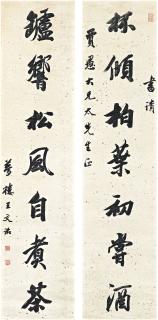 書請
杯傾柏葉初嘗酒
大兄太先生正
鑪響松風自煮茶
夢樓王文治